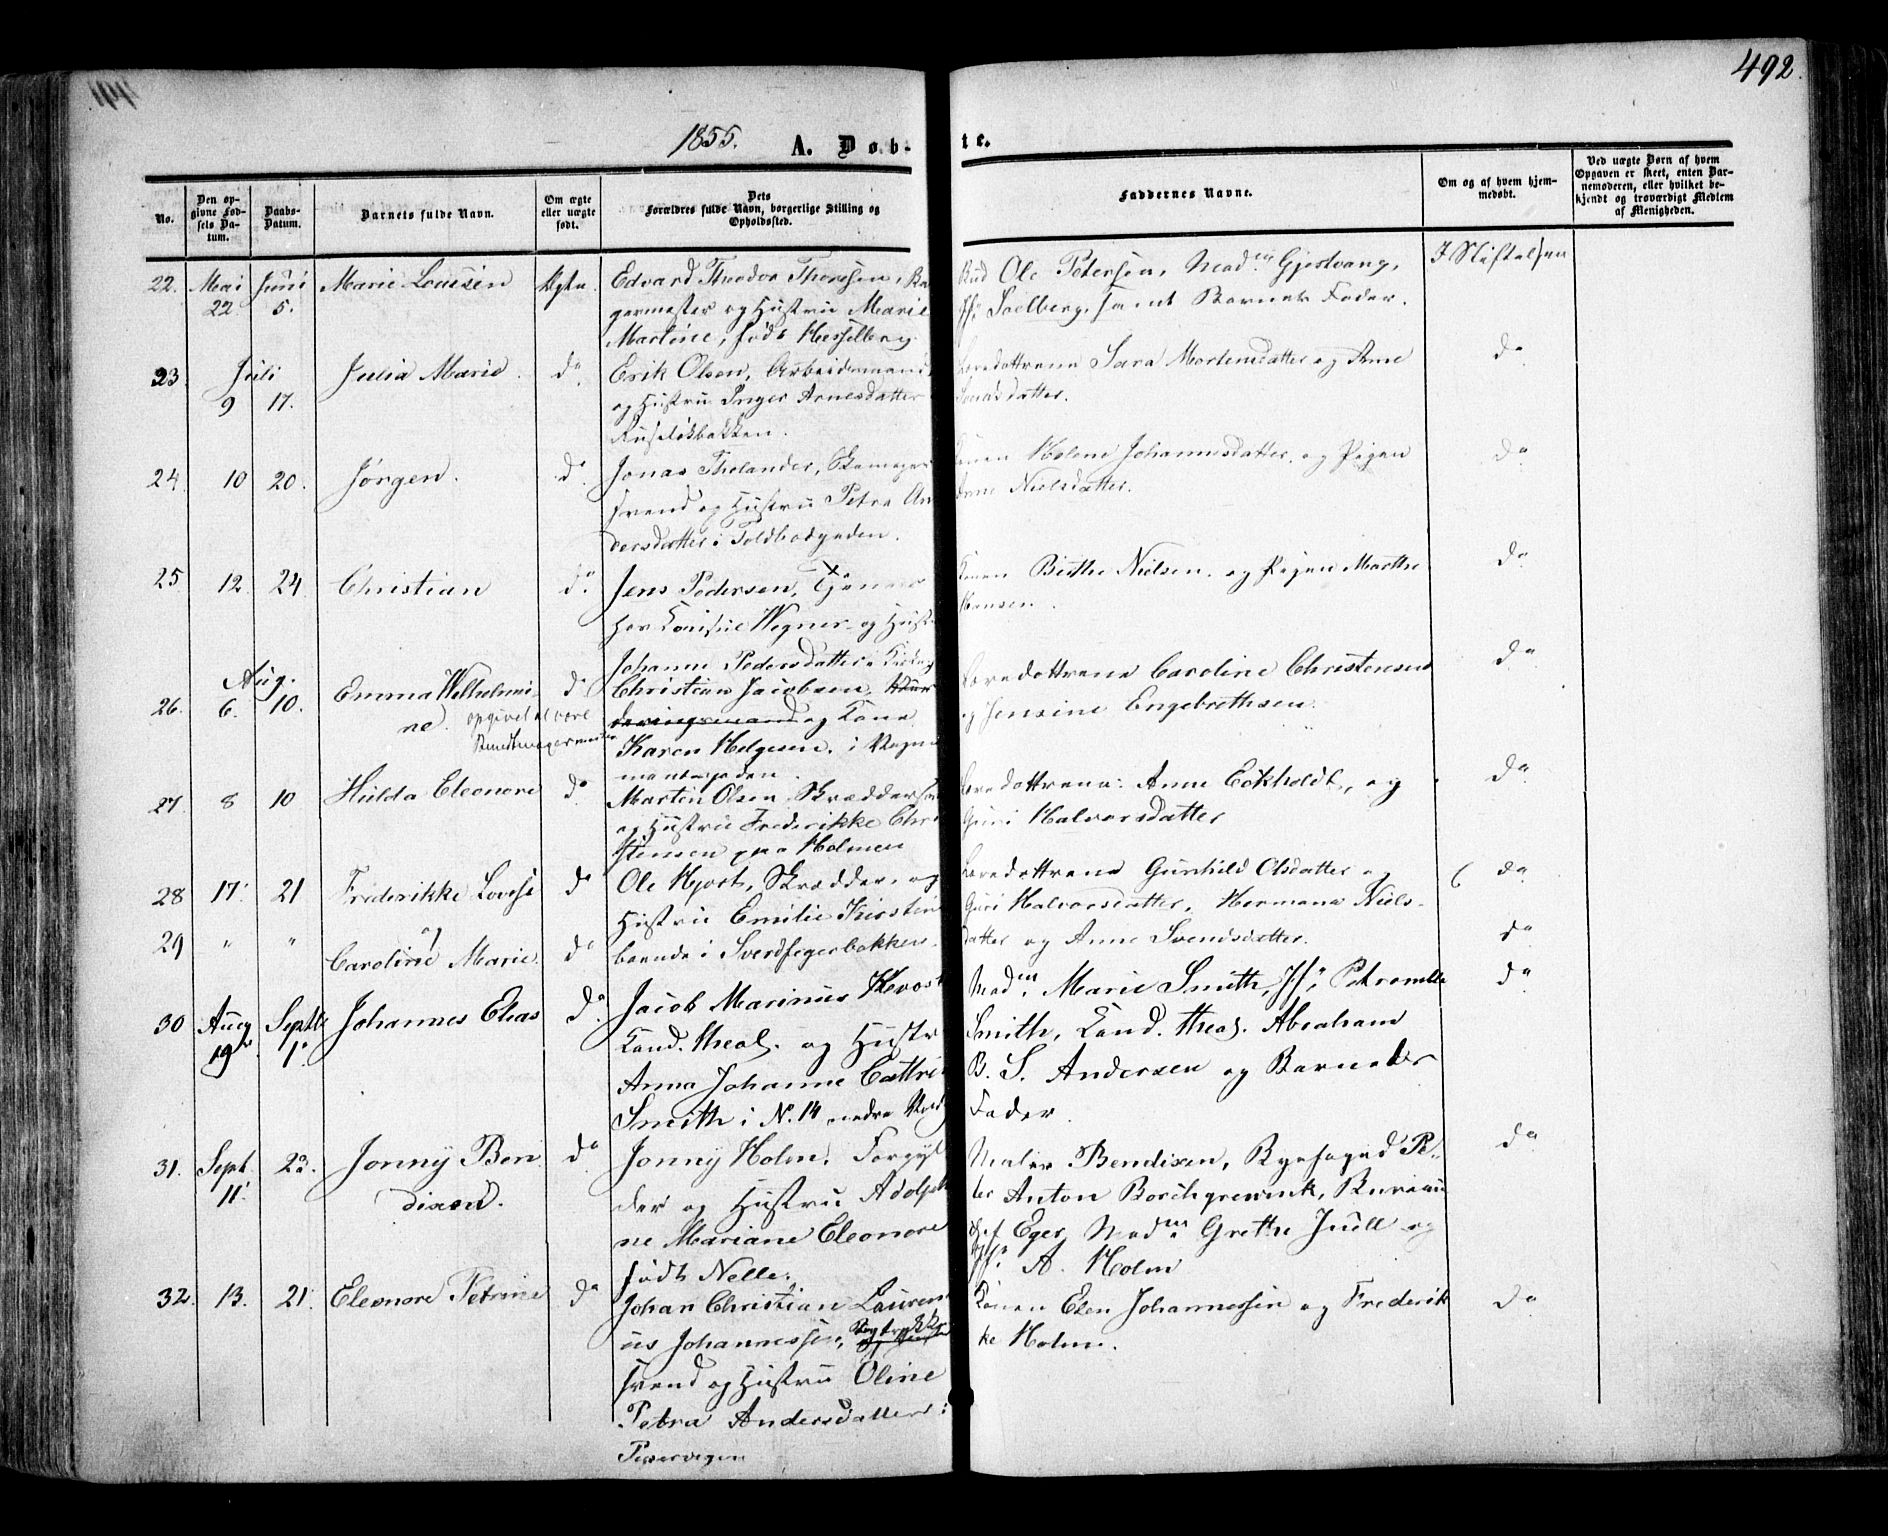 492.
1855.
A. Døb-
te.
No.
Den op-
givne Fød-
sels Da-
tum.
Daabs-
Datum.
Barnets fulde Navn.
Om ægte
eller uægte
født.
Dets
Forældres fulde Navn, borgerlige Stilling og
Opholdssted.
Faddernes Navne.
Om og af hvem hjem-
medøbt.
Ved uægte Børn af hvem
Opgaven er skeet, enten Bar-
nemoderen, eller hvilket be-
kjendt og troværdigt Medlem
af Menigheden.
22. Mai 22 Juni 5. Marie Louise Ægte.
Edvard Theodor Thoresen,
germester og Hustru Marie
Martine, født Hesselberg
Ole Petersen, Mad. Gjestvang,
Soelberg, samt Barnets Fader.
I Stiftelsen
23. Juli 9 17. Julia Marie do
Erik Olsen, Arbeidsmand
og Hustru Inger Arnesdatter
Ruseløkbakken.
Sara Mortensdatter og Ane
Svendsdatter.
do
24. 10 20. Jørgen. do
Jonas Thelander, Skomager
svend og Hustru Petra An
dersdatter i Toldbodgaden.
Konen Helene Johannesdatter og Pigen
Anne Nielsdatter.
do
25 12. 24 Christian do
Jens Pedersen, Tjener
hos Konsul Wegner og Hust
Johanne Pedersdatter
Konen Birthe Nielsen og Pigen Marthe
Hansen.
do
26. Aug. 6. 10. Emma Wilhelmi-
ne. opgivet at være
do
Christian Jacobsen,
og Kone
Karen Helgesen. i
Caroline Christensen
og Jensine Engebrethsen
do
27. 8 10 Hulda Eleonore do
Morten Olsen Skrædder
og Hustru Frederikke Chri
stensen paa Holmen
Anne Eckholdt, og
Guri Halvorsdatter
do
28 17. 21 Frederikke Lovise do
og
Ole Hjort, Skrædder og
Hustru Emilie Kirstin
Gunhild Olsdatter og
Guri Halvorsdatter, Hermana Niels-
do
29 " " Caroline Marie do
boende i Sverdfegerbakken
datter og Anne Svendsdatter.
do
30 Aug 19 Septb 1. Johannes Elias do
Jacob Marinus
Cand. theol. og Hustr
Anna Johanne Cathri
Smith i N. 14 nedre
Mad. Marie Smith, Jfr Petronelle
Smith, Cand. theol. Abraham
B. S. Andersen og Barnets
Fader.
do
31. Sept. 11. 23. Jonny Ben
dixen. do
Jonny Holm, Forgyl
der og Hustru Adolph
ne Mariane Eleonore
født Nelle.
Maler Bendixen, Byfoged Pe-
ter Anton Borchgrevink, Bureau
chef Eger, Mad. Grethe Juell og
Jfr A. Holm
do
32. 13. 21. Eleonore Petrine do
Johan Christian Lauren
us Johannessen, Bogtrykker
svend og Hustru Oline
Petra Andersdatter:
Pilservegen
Konen Elen Johannessen og Frederik
ke Holm.
do